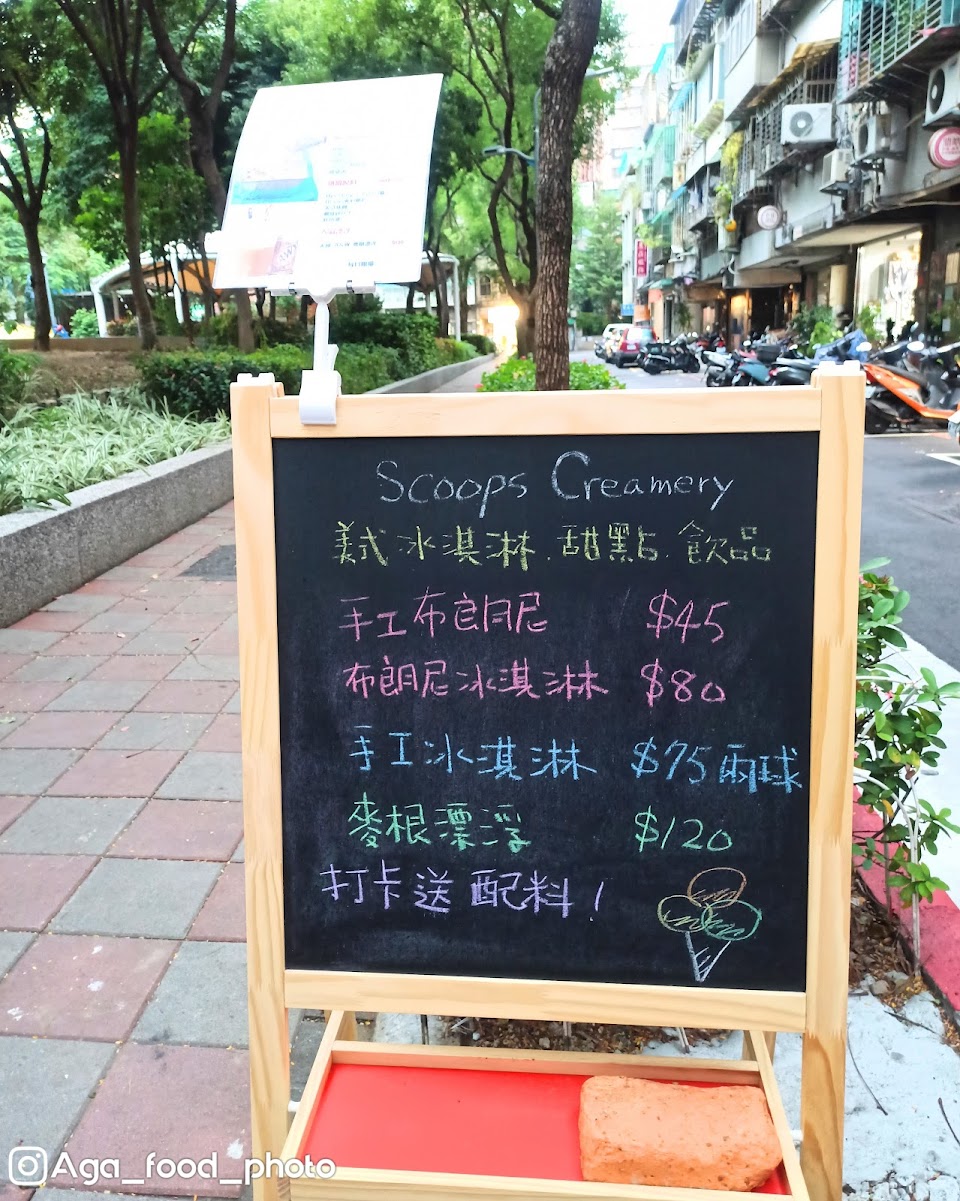 Scoops Creamery
美式冰淇淋.甜點.飲品
手工布朗尼 $45
布朗尼冰淇淋 $80
手工冰淇淋 $75 兩球
麥根漂浮 $120
打卡送配料!
Aga_food_photo